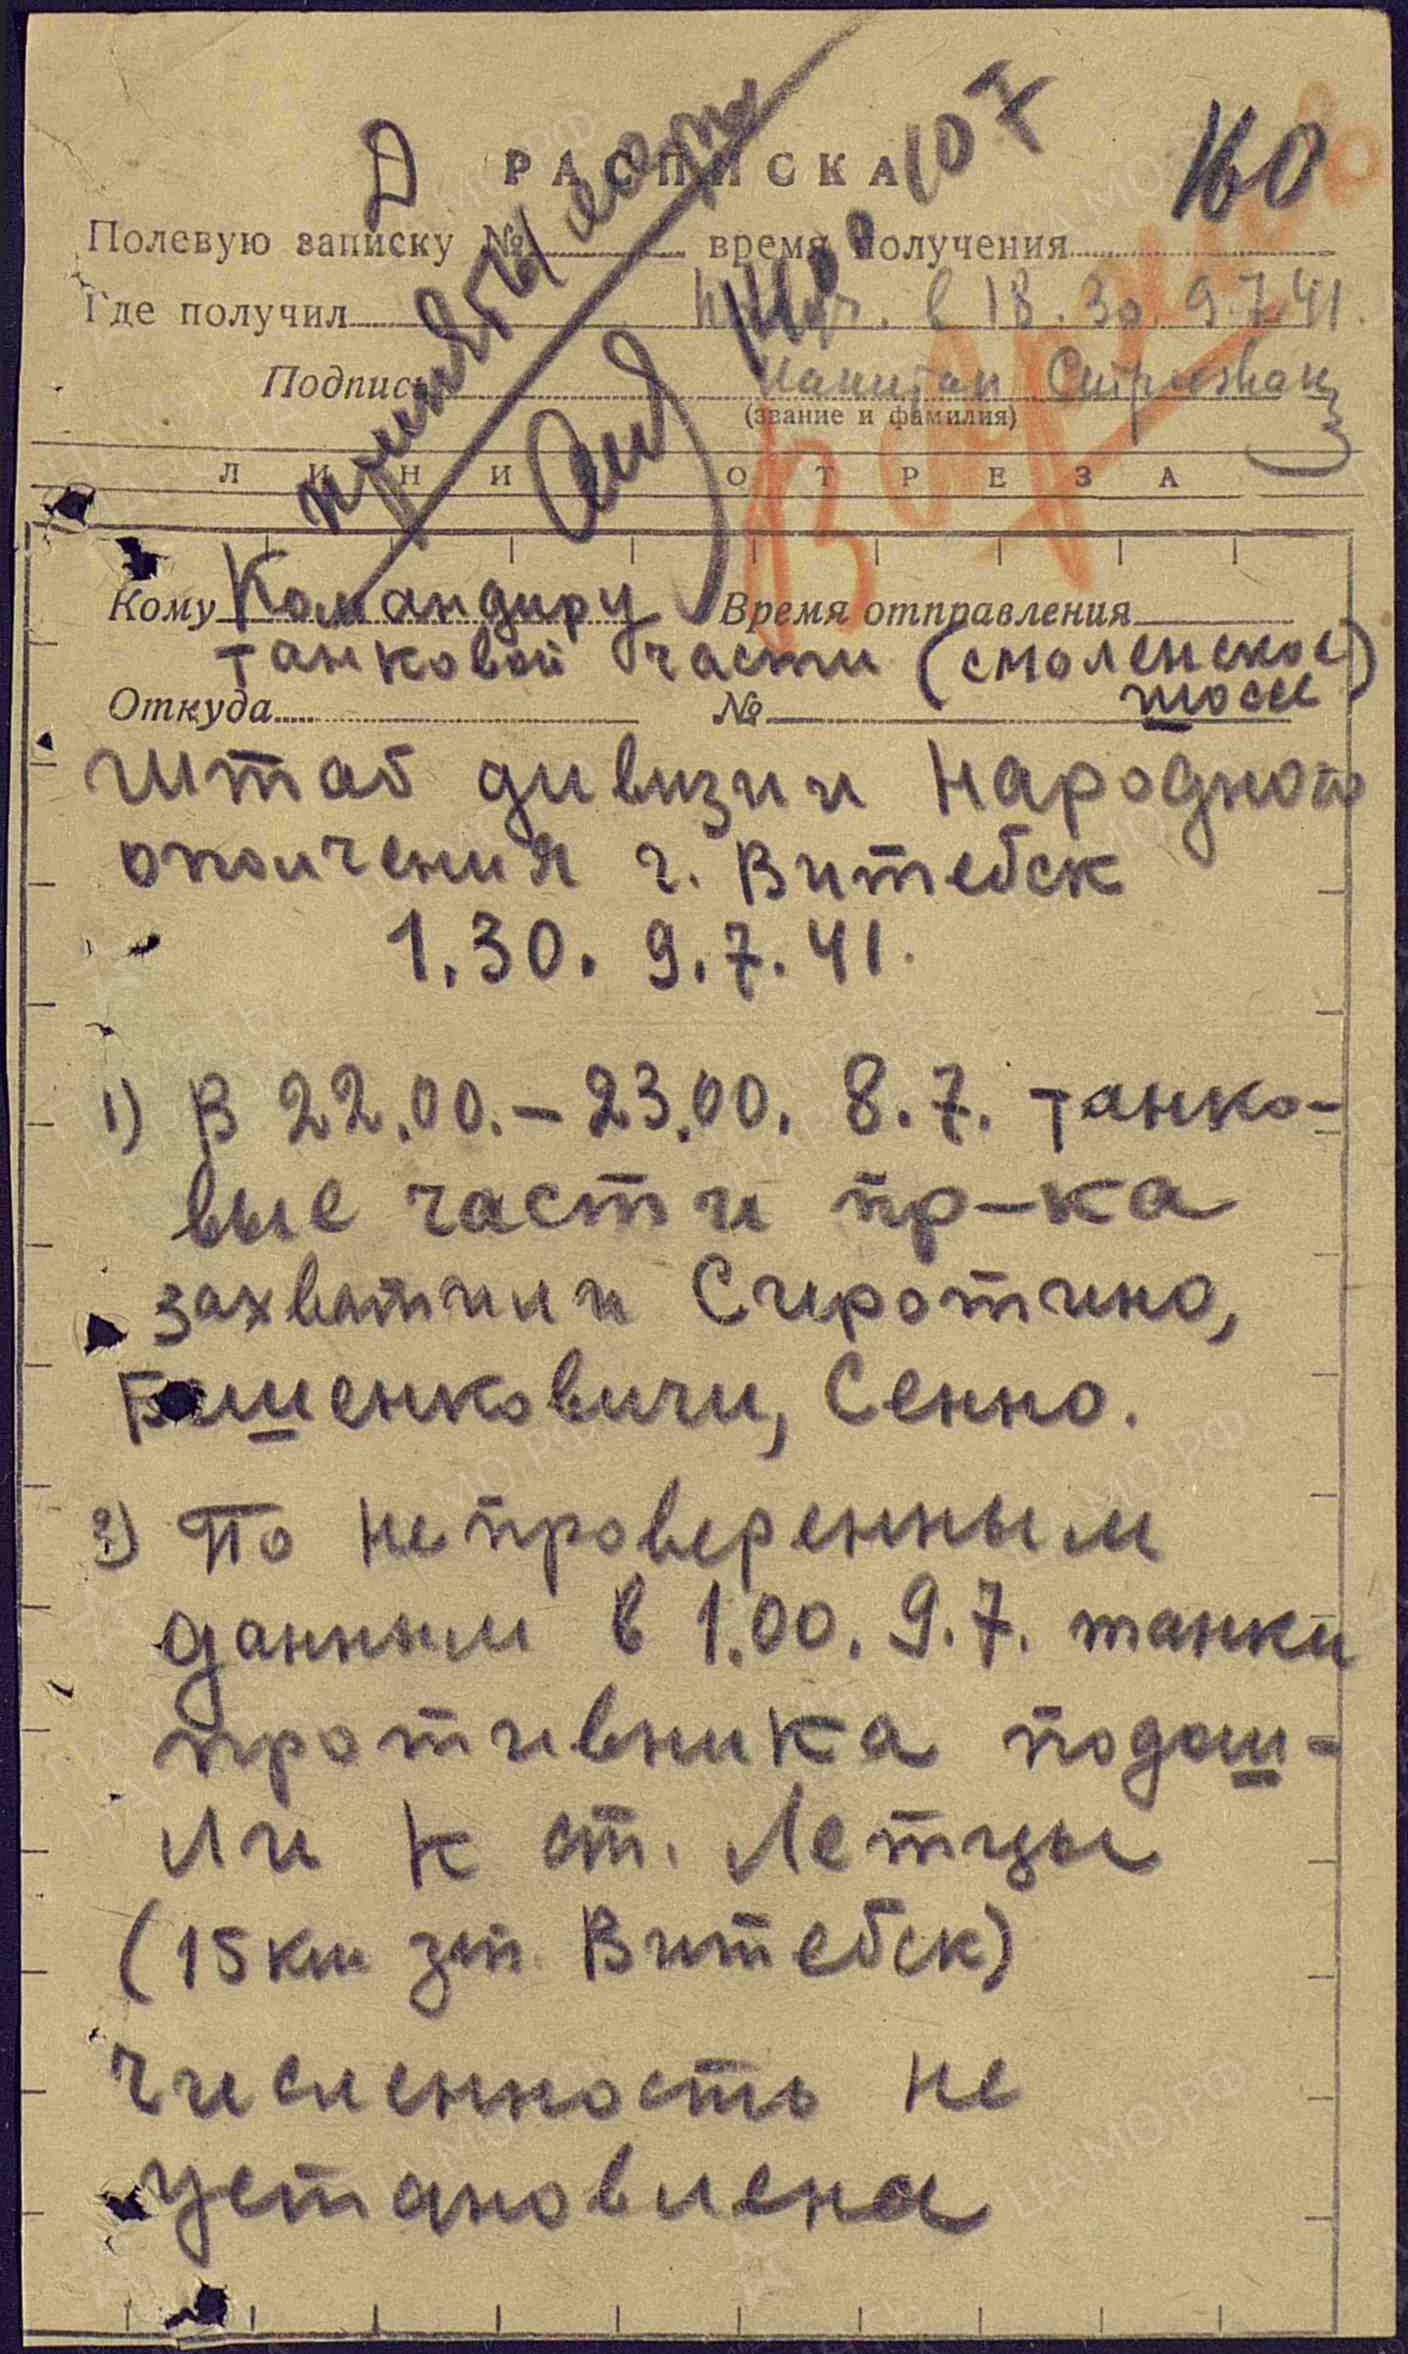 РАСПИСКА
160
Полевую записку № время получения
Где получил в 18.30 9.7.41.
Подпись Капитан
(звание и фамилия)
ЛИНИЯ ОТРЕЗА
приняты меры
Кому Командиру Время отправления
танковой части (смоленское
шоссе)
Откуда №
Штаб дивизии народного
ополчения г. Витебск
1.30. 9.7.41.
1) В 22.00.-23.00. 8.7. танко-
вые части пр-ка
захватили Сиротино,
Бешенковичи, Сенно.
2) По непроверенным
данным в 1.00. 9.7. танки
противника подош-
ли к ст. Летцы
(15 км зап. Витебск)
численность не
установлена